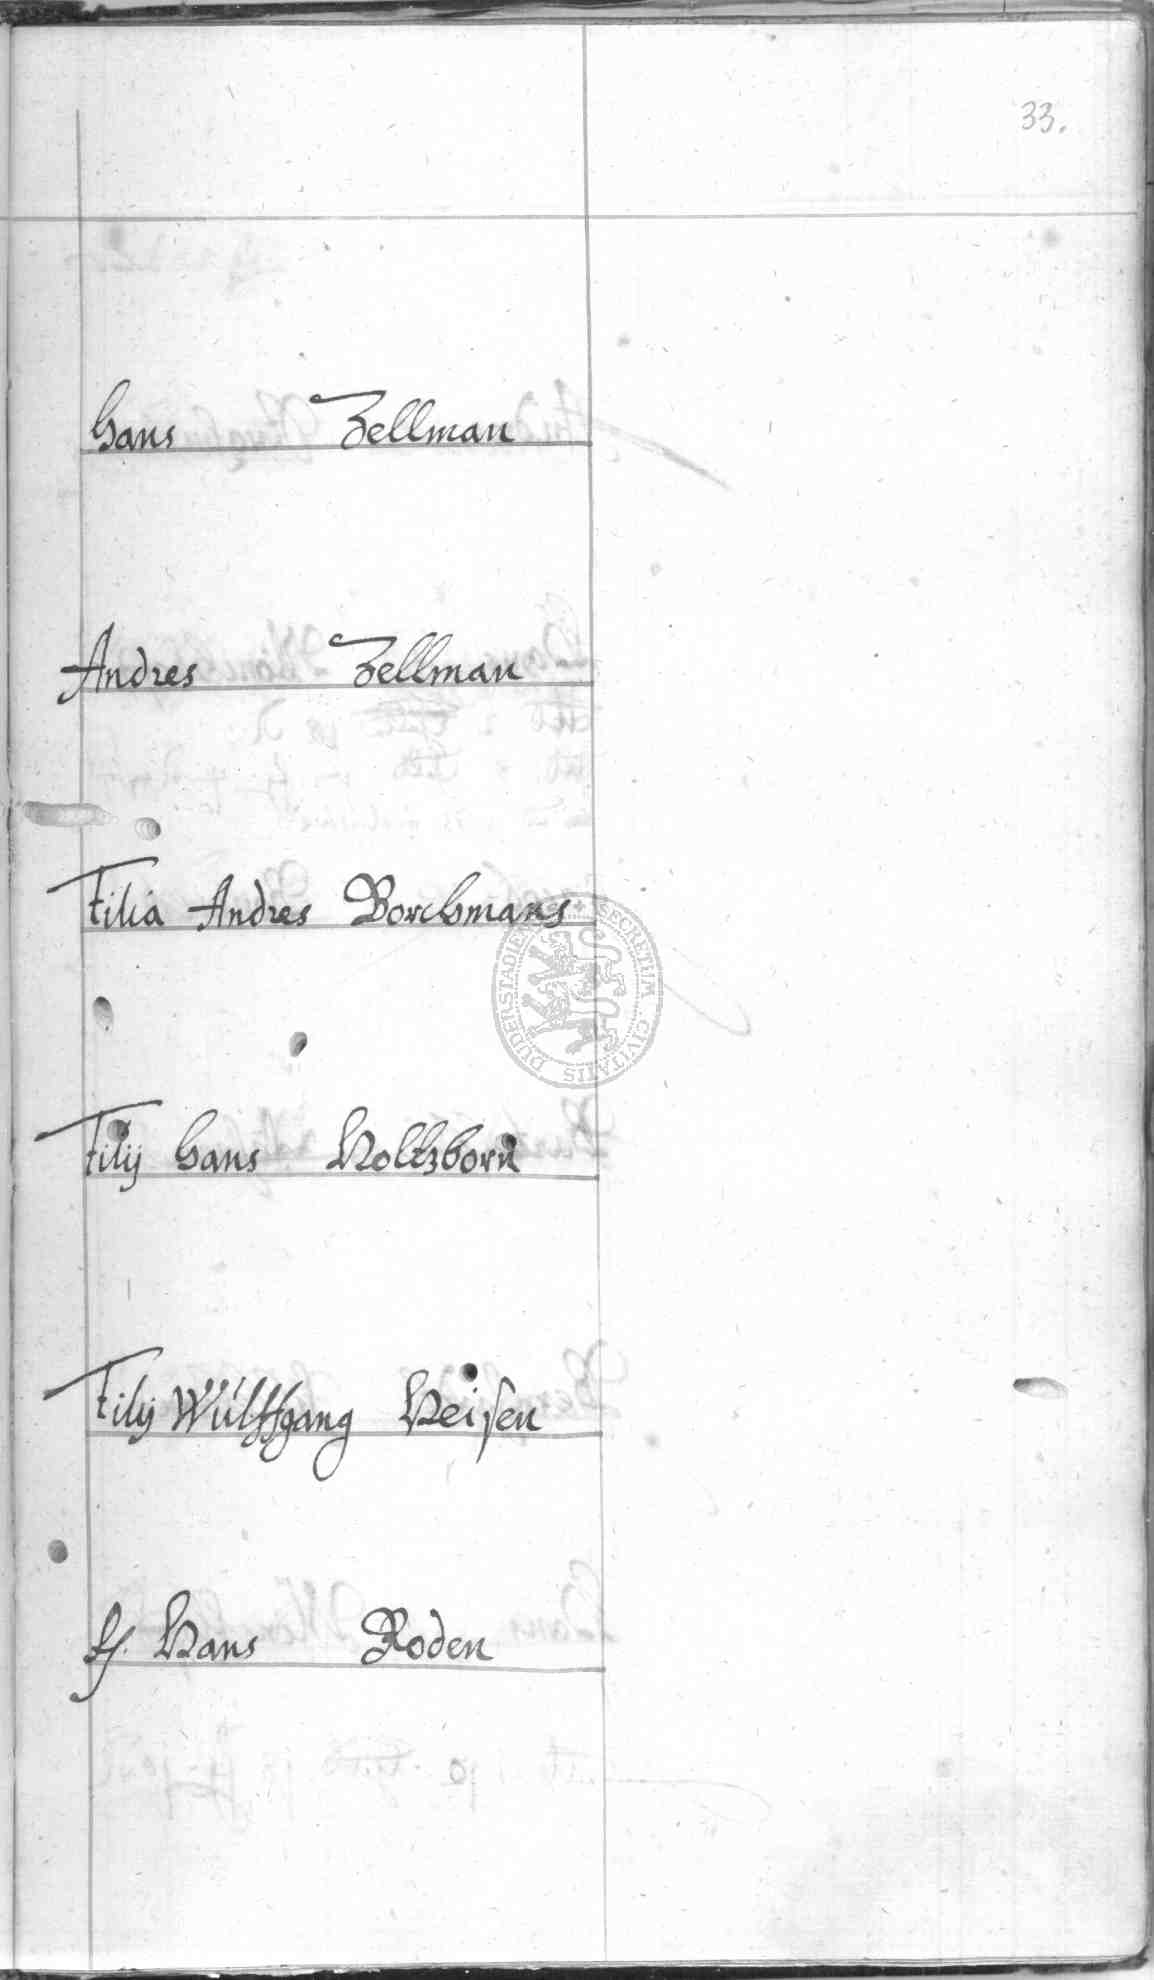 33.
Hans Zellman
Andres Zellman
Filia Andres Borchmans
SECRETUM CIVITATIS DUDERSTADIENSIS
Filij Hans Holtzborn
Filij Wulffgang Heisen
H. Hans Roden